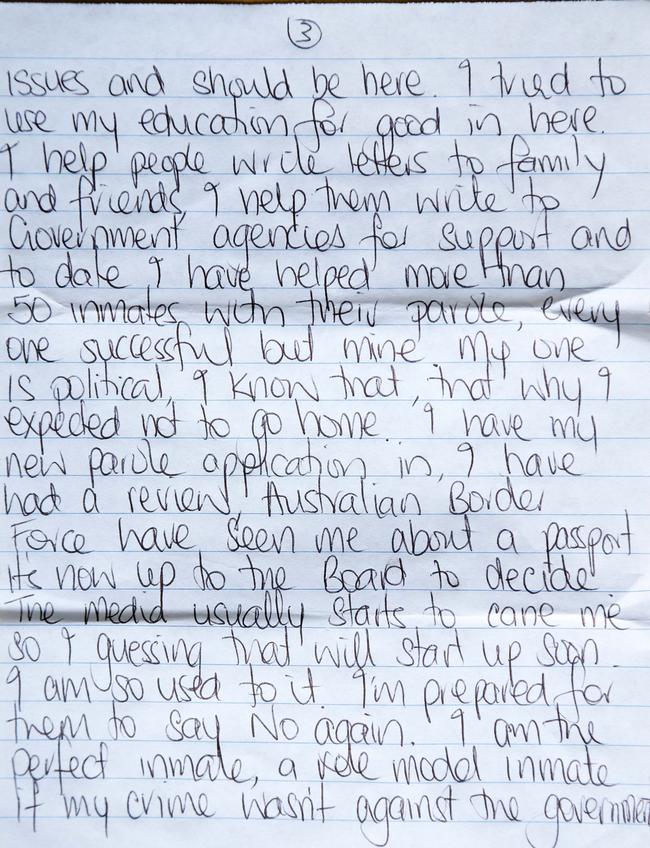 3
issues and should be here. I tried to
use my education for good in here.
I help people write letters to family
and friends, I help them write to
Government agencies for support and
to date I have helped more than
50 inmates with their parole, every
one successful but mine. My one
is political, I know that, that why I
expected not to go home. I have my
new parole application in, I have
had a review, Australian Border
Force have seen me about a passport
it's now up to the Board to decide
The media usually starts to cane me
so I guessing that will start up soon.
I am so used to it. I'm prepared for
them to say No again. I am the
perfect inmate, a role model inmate
if my crime wasn't against the governmen